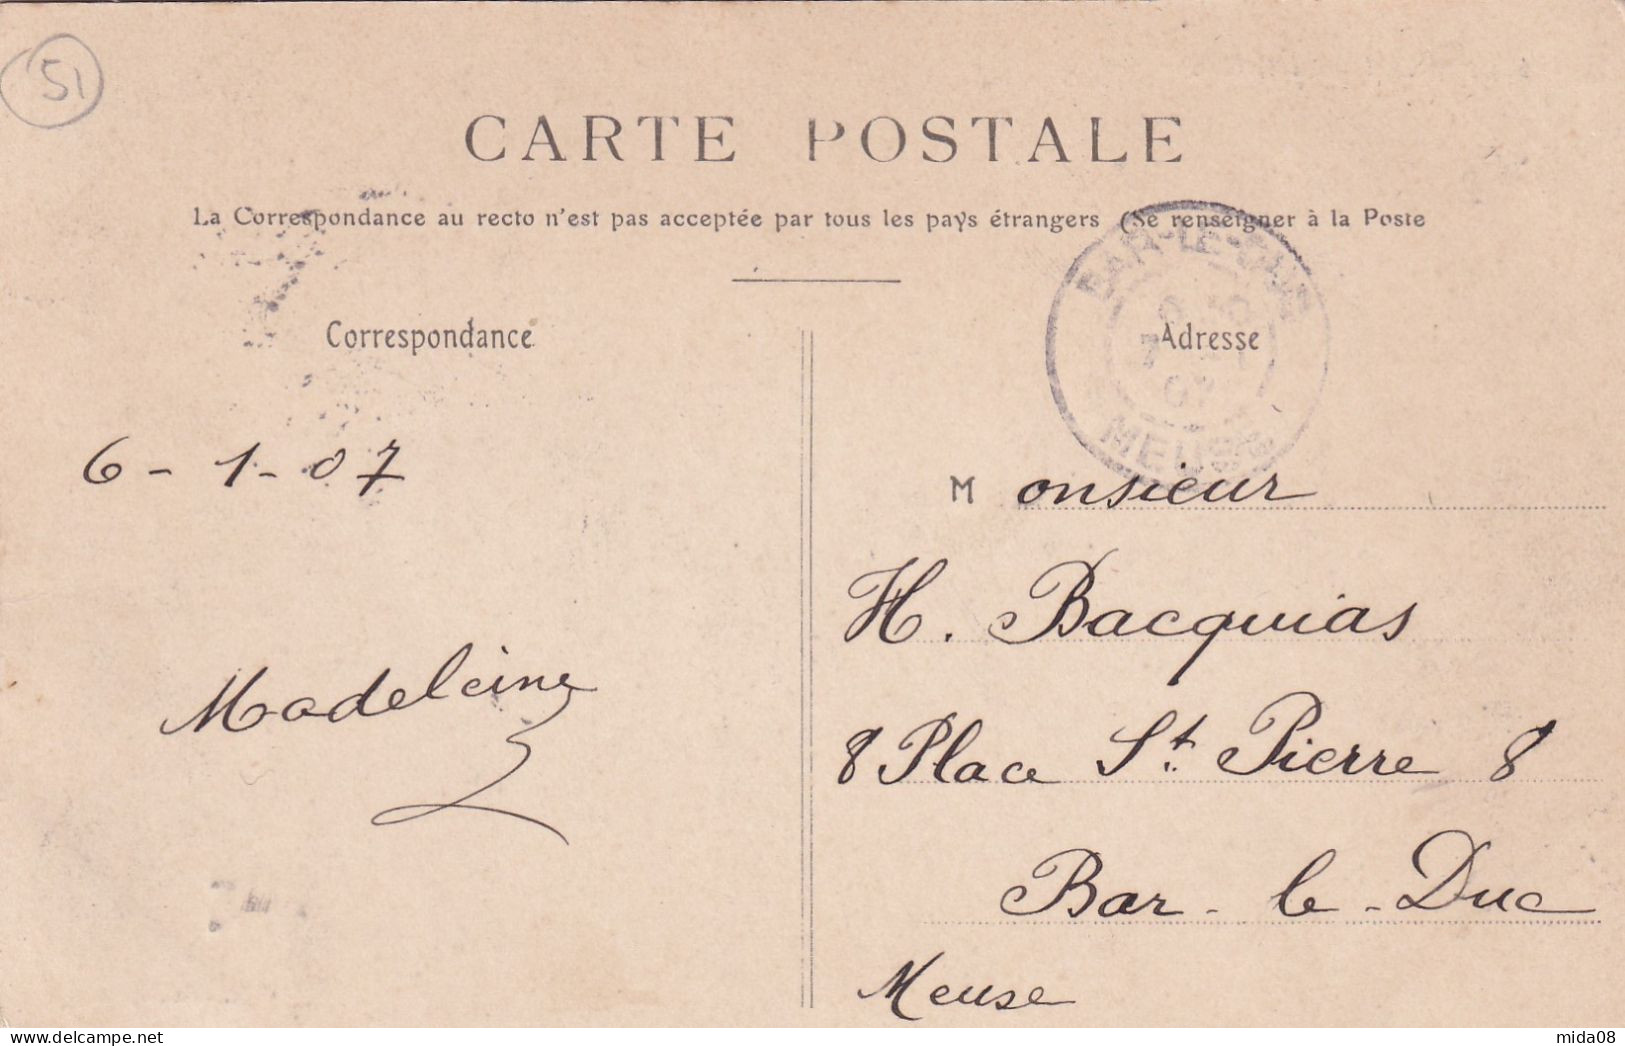 51
CARTE POSTALE
La Correspondance au recto n'est pas acceptée par tous les pays étrangers (Se renseigner à la Poste
Correspondance
Adresse
BAR-LE-DUC
7
07
MEUSE
6 - 1 - 07
Madeleine
Monsieur
H. Bacquias
8 Place St. Pierre 8
Bar - le - Duc
Meuse
www.delcampe.net
mida08